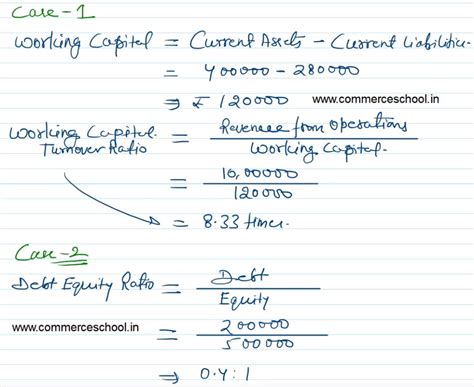 Case-1
Working Capital = Current Assets - Current Liabilities.
= 400000 - 280000
⇒ ₹ 120000 www.commerceschool.in
Working Capital Turnover Ratio = Revenue from Operations / Working Capital.
= 10,00000 / 120000
= 8.33 times.
Case-2
Debt Equity Ratio = Debt / Equity
www.commerceschool.in = 200000 / 500000
⇒ 0.4 : 1